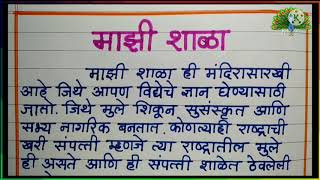 माझी शाळा
माझी शाळा ही मंदिरासारखी
आहे जिथे आपण विद्येचे ज्ञान घेण्यासाठी
जातो. जिथे मुले शिकून सुसंस्कृत आणि
सभ्य नागरिक बनतात. कोणत्याही राष्ट्राची
खरी संपत्ती म्हणजे त्या राष्ट्रातील मुले
ही असते आणि ही संपत्ती शाळेत ठेवलेली